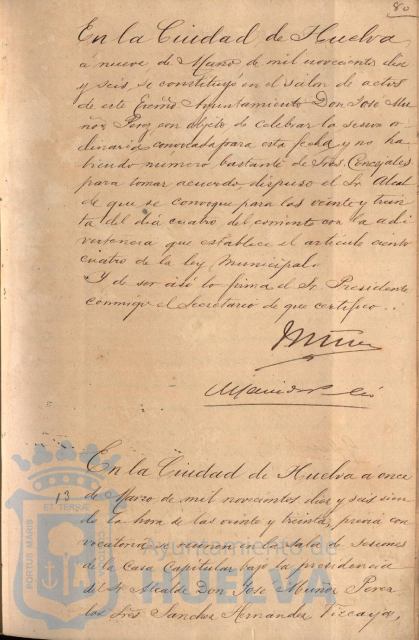 80
En la Ciudad de Huelva
a nueve de Marzo de mil novecientos diez
y seis, se constituyó en el salon de actos
de este Excmo Ayuntamiento Don Jose Mu-
ñoz Perez con objeto de celebrar la sesion or
dinaria convocada para esta fecha y no ha
biendo numero bastante de Sres Concejales
para tomar acuerdo dispuso el Sr Alcal
de que se convoque para las veinte y trein
ta del dia cuatro del corriente con la adi
vertencia que establece el artículo ciento
cuatro de la ley Municipal.
Y de ser asi lo firma el Sr Presidente
conmigo el Secretario de que certifico.
En la Ciudad de Huelva a once
13
de Marzo de mil novecientos diez y seis sien
do la hora de las veinte y treinta, previa con
vocatoria se reunieron en la sala de sesiones
de la Casa Capitular bajo la presidencia
del Sr Alcalde Don Jose Muñoz Perez
los Sres Sanchez Hernandez Vizcaya,
PORTUS MARIS
ET TERRÆ
Ayuntamiento de
HUELVA